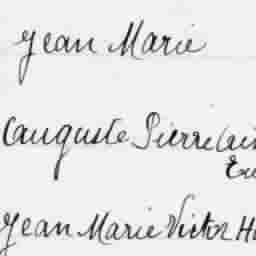 Jean Marie
Auguste Pierre
Jean Marie Victor